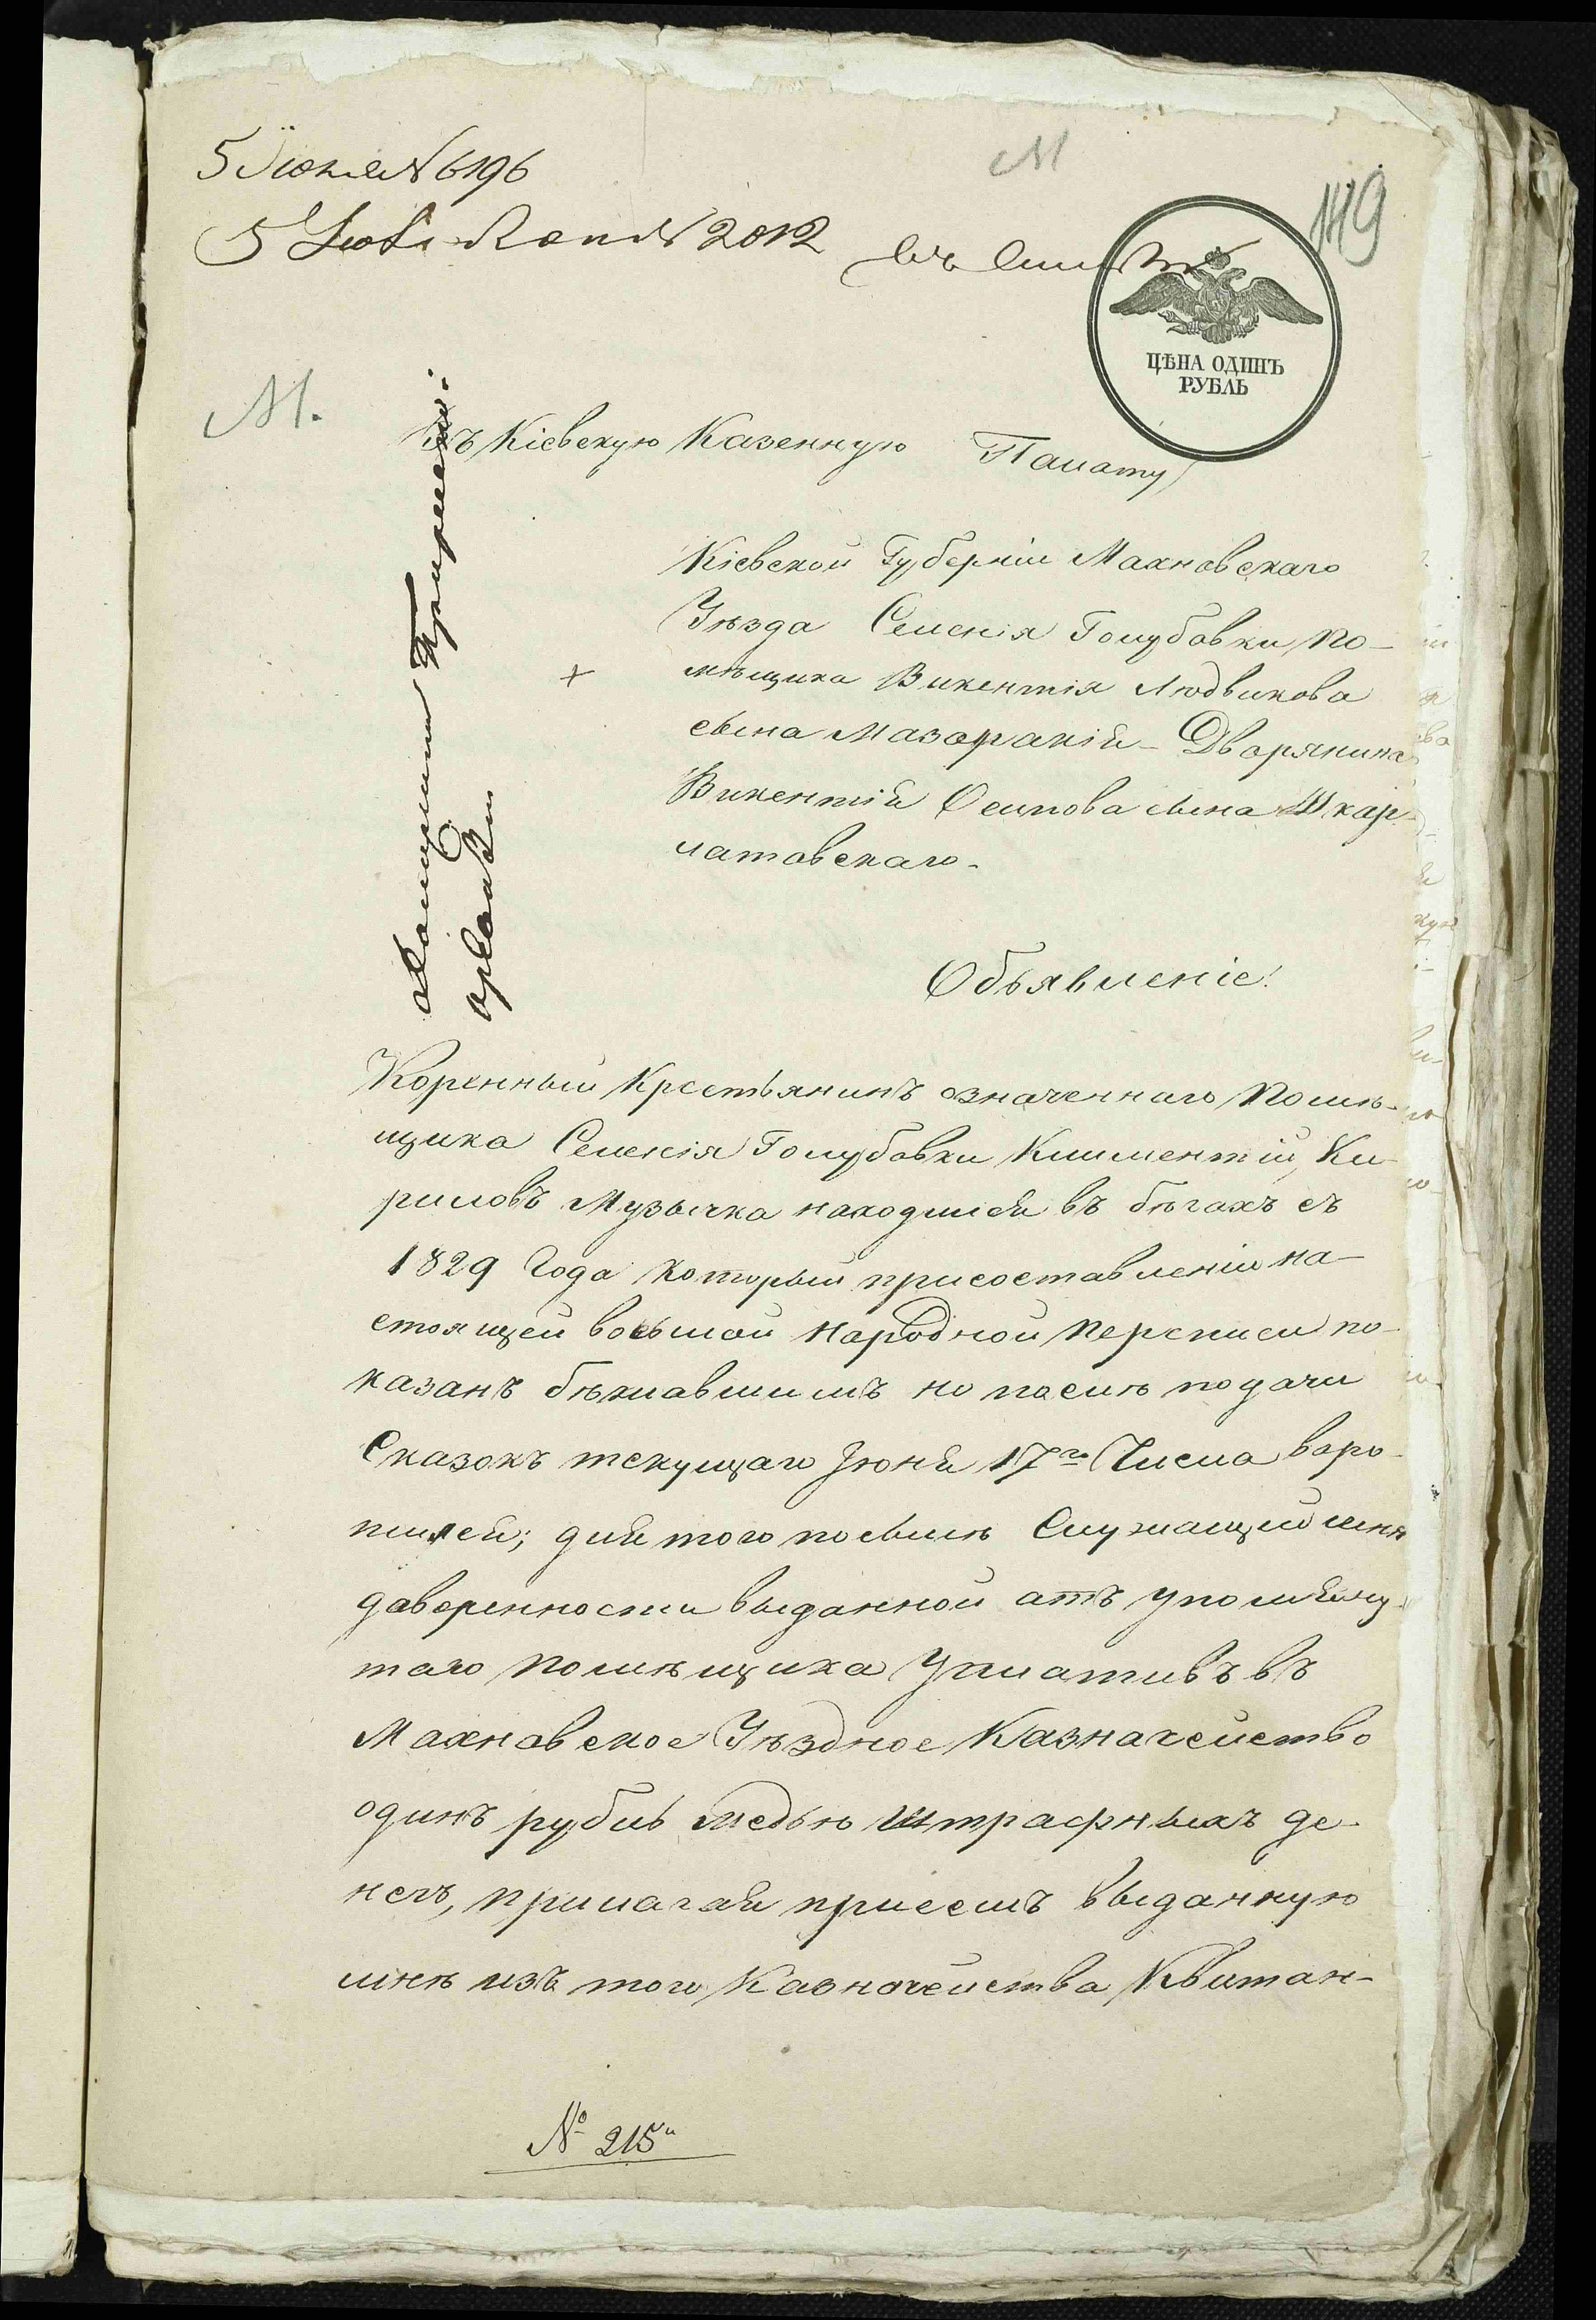 5 Июля № 6196
5 Июля № 2012
М
149
ЦѢНА ОДИНЪ
РУБЛЬ
М.
Въ Кіевскую Казенную Палату
Кіевской Губерніи Махновскаго
Уѣзда Селенія Голубовки По-
мѣщика Викентія Людвикова
сына Мазаракій – Дворянина
Викентій Осипова сына Шкар-
латовскаго.
Объявленіе!
Коренный Крестьянинъ означеннаго Помѣ-
щика Селенія Голубовки Климентій Ки-
риловъ Музычка находился въ бѣгахъ съ
1829 Года который присоставленіи на-
стоящей восьмой народной переписи по-
казанъ бѣжавшимъ но послѣ подачи
Сказокъ текущаго Іюня 17го Числа воро-
тился; для того посылѣ Служащей мнѣ
доверенности выданной отъ упомяну-
таго помѣщика Уплативъ въ
Махновское Уѣздное Казначейство
одинъ рубль медью штрафныхъ де-
негъ, прилагая присемъ выданную
мнѣ изъ того Казначейства Квитан-
№ 215